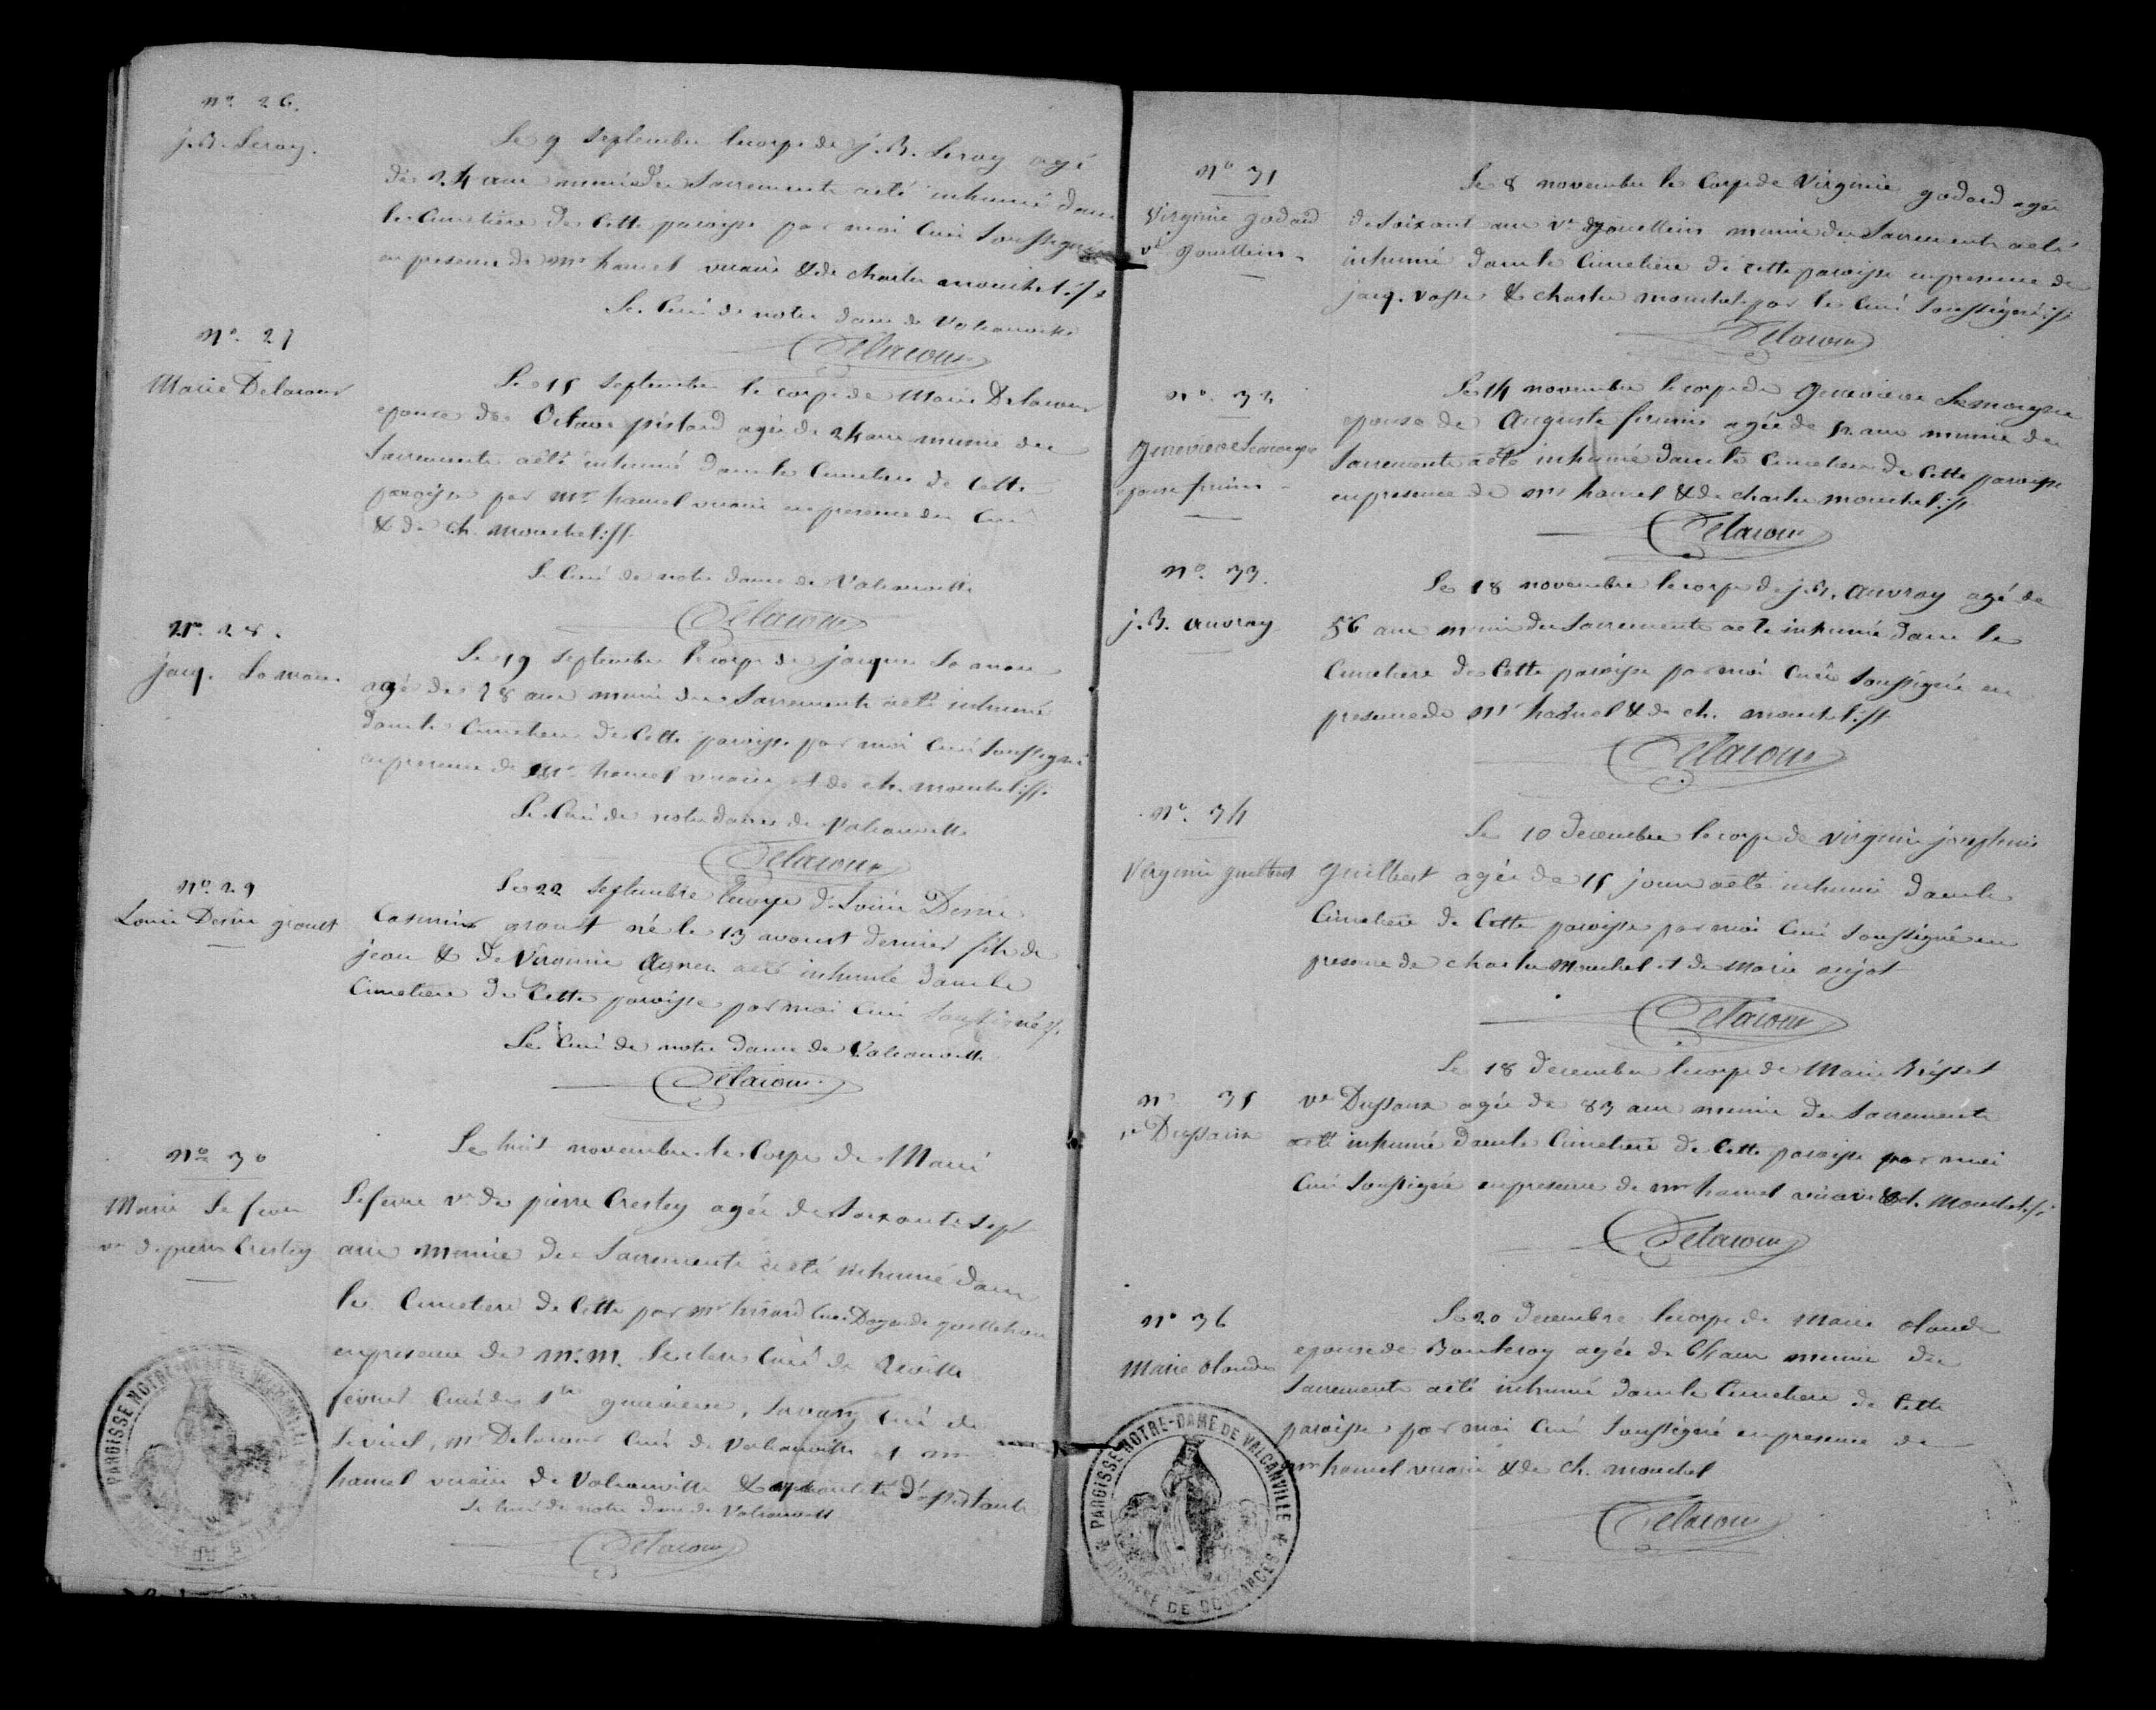 nº 26.
j.B. Leroy.
Le 9 septembre le corps de j. B. Leroy agé
de 24 ans muni des Sacrements a été inhumé dans
le Cimetière de Cette paroisse par moi Curé Soussigné
en presence de Mr hamel vicaire & de charles mouchel ./.
Le Curé de notre dame de Valcanville
Delacour
nº. 27
Marie Delacour
Le 15 septembre le corps de Marie Delacour
epouse de Octave pistard agée de 24 ans munie des
Sacrements a été inhumé dans le Cimetiere de Cette
paroisse par Mr hamel vicaire en presence du Curé
& de ch. mouchel ./.
Le Curé de notre dame de Valcanville
Delacour
nº. 28.
jacq.
Le 19 septembre le corps de jacques
agé de 78 ans muni des Sacrements a été inhumé
dans le Cimetiere de Cette paroisse par moi Curé Soussigné
en presence de Mr hamel vicaire et de ch. mouchel ./.
Le Curé de notre dame de Valcanville
Delacour
nº. 29
Louis Desiré groult
Le 22 septembre le corps de Louis Desiré
Casimir groult né le 13 aoust dernier fils de
jean & de Virginie Agnes a été inhumé dans le
Cimetiere de Cette paroisse par moi Curé Soussigné ./.
Le Curé de notre Dame de Valcanville
Delacour
nº 30
Marie Lefevre
ve de pierre Crestey
Le huit novembre le Corps de Marie
Lefevre ve de pierre Crestey agée de Soixante Sept
ans munie des Sacrements a été inhumé dans
le Cimetiere de Cette par Mr Curé Doyen de quettehou
en presence de M.M. Leclerc Curé de Réville
fevrier Curé de Ste genevieve, Curé de
Mr Delacour Curé de Valcanville et Mr
hamel vicaire de Valcanville & d'assistants
Le Curé de notre dame de Valcanville
Delacour
PAROISSE NOTRE-DAME DE VALCANVILLE
nº 31
Virginie godard
ve gouellain
Le 8 novembre le Corps de Virginie godard agée
de Soixante ans ve gouellain munie des Sacrements a été
inhumé dans le Cimetiere de cette paroisse en presence de
jacq. vasse & charles mouchel par le Curé Soussigné ./.
Delacour
nº. 32
genevieve Lemoigne
epouse firmin
Le 14 novembre le corps de genevieve Lemoigne
epouse de Auguste firmin agée de ans munie des
Sacrements a été inhumé dans le Cimetiere de Cette paroisse
en presence de Mr hamel & de charles mouchel ./.
Delacour
nº. 33.
j. B. auvray
Le 18 novembre le corps de j. B. auvray agé de
56 ans muni des Sacrements a été inhumé dans le
Cimetiere de Cette paroisse par moi Curé Soussigné en
presence de Mr hamel & de ch. mouchel ./.
Delacour
nº. 34
Virginie guilbert
Le 10 decembre le corps de virginie josephine
guilbert agée de 15 jours a été inhumé dans le
Cimetiere de Cette paroisse par moi Curé Soussigné en
presence de charles Mouchel et de Marie anjot
Delacour
nº 35
ve Dussaux
Le 18 decembre le corps de Marie Brisset
ve Dussaux agée de 83 ans munie des Sacrements
a été inhumé dans le Cimetiere de Cette paroisse par moi
Curé Soussigné en presence de mr hamel vicaire & ch. Mouchel ./.
Delacour
nº 36
Marie olande
Le 20 decembre le corps de Marie olande
epouse de Bon leroy agée de 64 ans munie des
Sacrements a été inhumé dans le Cimetiere de Cette
paroisse par moi Curé Soussigné en presence de
mr hamel vicaire & de ch. mouchel
Delacour
PAROISSE NOTRE-DAME DE VALCANVILLE
DIOCESE DE COUTANCES